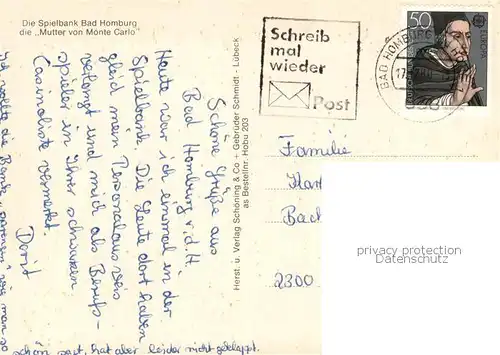 Die Spielbank Bad Homburg
die „Mutter von Monte Carlo"
Schöne Grüße aus
Bad Homburg v.d.H.
Heute war ich einmal in der
Spielbank. Die Leute dort haben
gleich mein Personalausweis
verlangt und mich als Berufs-
spieler in Ihrer schwarzen
Casinoliste vermerkt.
Dorit
Ich wollte die Bank „sprengen" wie man so
schön sagt, hat aber leider nicht geklappt.
Herst. u. Verlag Schöning & Co + Gebrüder Schmidt - Lübeck
as Bestellnr. Hobu 203
Schreib
mal
wieder
Post
BAD HOMBURG
50
EUROPA
Familie
Bach
2300
privacy protection
Datenschutz